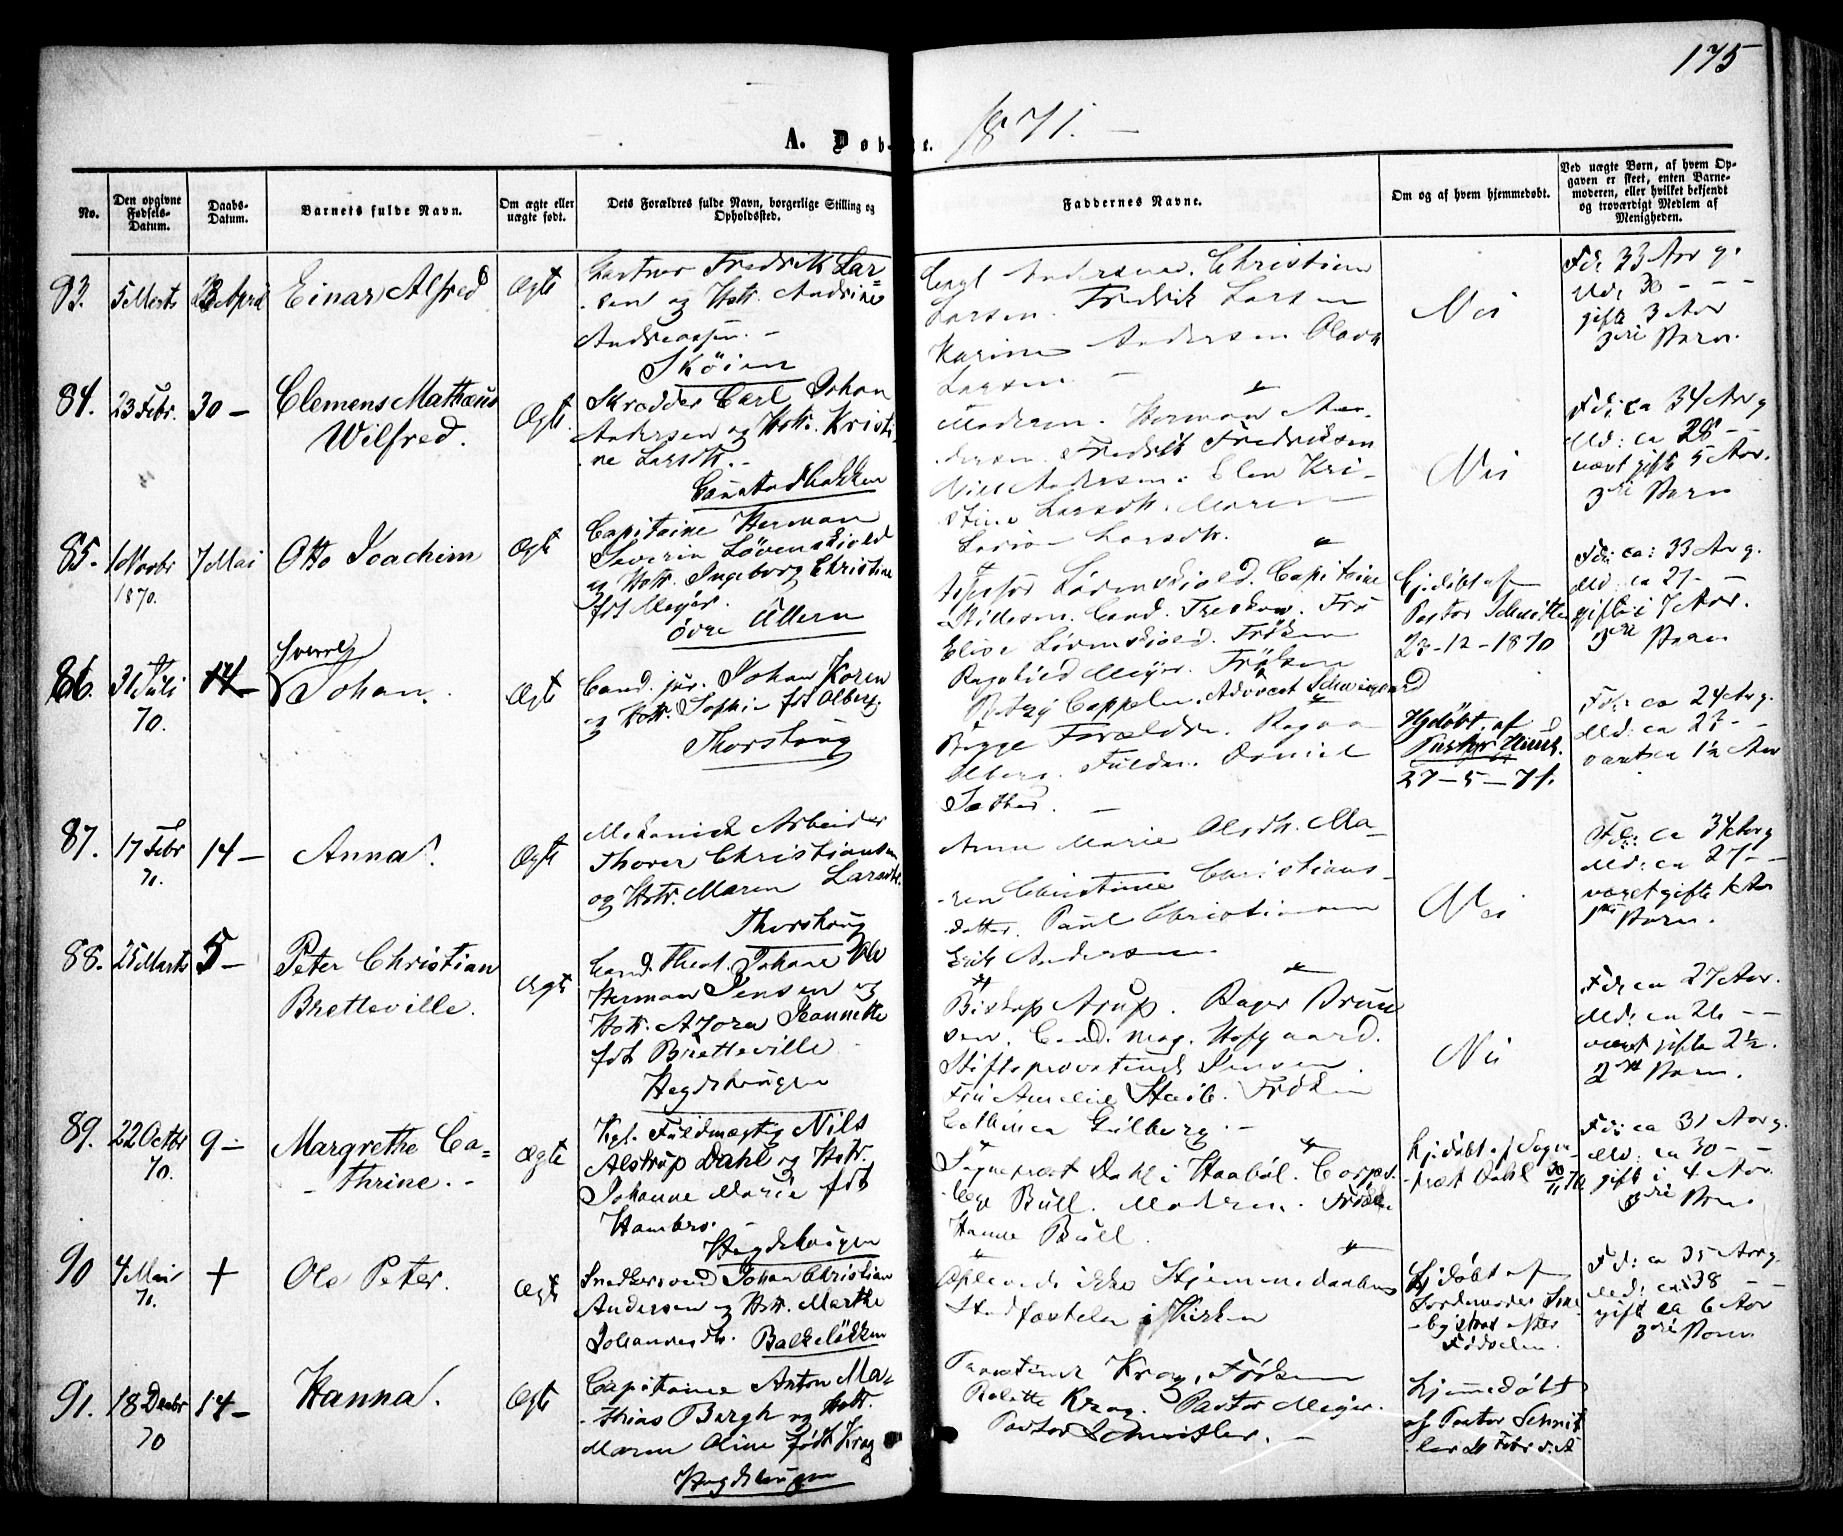 175
A. Døbte. 1871. –
No.
Den opgivne Fødsels-Datum.
Daabs-Datum.
Barnets fulde Navn.
Om ægte eller uægte født.
Dets Forældres fulde Navn, borgerlige Stilling og Opholdssted.
Faddernes Navne.
Om og af hvem hjemmedøbt.
Ved uægte Børn, af hvem Opgaven er skeet, enten Barnemoderen, eller hvilket bekjendt og troværdigt Medlem af Menigheden.
83. 5 Marts 23 April Einar Alfred Ægte
Fredrik Lar=
sen og Hstr. Andrine
Andreassen. –
Skøien
Andersen. Christian
Larsen. Fredrik Larsen
Karine Andersen Olava
Larsen. –
Nei
Fdr 33 Aar g.
Md: 30 – – –
gifte 3 Aar
3die Barn.
84. 23 Febr. 30 – Clemens Mathæus
Wilfred.
Ægte
Skrædder Carl Johan
Andersen og Hstr. Kristi
ne Larsdtr. –
Moderen. Herman An-
dersen. Fredrik Fredriksen
Nils Andersen. Elen Kri-
stine Larsdtr. Maren
Larsdtr.
Nei
Fdr: ca 34 Aar g
Md: ca 28 – –
været gifte 5 Aar.
3die Barn
85. 1 Novbr 1870. 7 Mai Otto Joachim Ægte
Capitaine Herman
Severin Løvenskiold
og Hstr. Ingeborg Christine
fdt Meyer.
Øvre Ullern
Løvenskiold. Capitaine
Cand. Treskow. Frø
Elise Løvenskiold. Frøken
Ragnhild Meyer. Frøken
Cappelen. Advocat Schweigaard
Hjdøbt af
Pastor Schnitler
23-12-1870
Fdr: ca: 33 Aar g.
Md: ca 27 –
gifte i 7 Aar.
3die Barn
86. 31 Juli 70. 14 – Sverre
Johan.
Ægte
Cand. jur. Johan Koren
og Hstr. Sophie fdt Olberg.
Thorshaug
Forældre.
Olberg. Fuldm. Daniel
Sæther. –
Hjdøbt af
Pastor
27-5-71.
Fdr: ca 24 Aar g.
Md: ca 23 – –
ca 1½ Aar
87. 17 Febr 71. 14 – Anna. Ægte
Mekanisk Arbeider
Thorer Christiansen
og Hstr. Maren Larsdtr.
Thorshaug
Anne Marie Olsdtr. Ma-
ren Christine Christians-
datter. Paul Christiansen
Erik Andersen.
Nei
Fdr: ca 34 Aar g
Md: ca 27 – –
været gifte 1 Aar
1ste Barn.
88. 25 Marts 5 – Peter Christian
Bretteville.
Ægte
Cand. Theol. Johan Ole
Herman Jensen og
Hstr. Azora Jeannette
fdt Bretteville.
Hegdehaugen
Biskop Arup. Roger Bruun
sen. Cand. mag. Hofgaard.
Stiftsprovstinde Jensen.
Fru Amelie Frøken
Cathinca Gulberg. –
Nei
Fdr ca 27 Aar.
Md: ca 26 – –
været gifte 2½.
2det Barn.
89. 22 Octbr 70. 9 – Margrethe Ca=
thrine. –
Ægte
Kgl. Fuldmægtig Nils
Alstrup Dahl og Hstr.
Johanne Marie fdt
Hambro.
Hegdehaugen
Sognepræst Dahl i Corps
læge Bull. Moderen. Frøken
Hanne Bull.
Hjdøbt af Sogne-
præst Dahl 30/11 70
Fdr: ca 31 Aar g.
Md: ca 30 – –
gift i 4 Aar
3die Barn
90 4 Mai 71. + Ole Peter. Ægte
Snedkersvend Johan Christian
Andersen og Hstr. Marthe
Johannesdtr. Balkeløkken
Oplevede ikke Hjemmedaabens
Stadfæstelse i Kirken
Hjdøbt af
Jordemoder
strax efter
Fødselen.
Fdr: ca 35 Aar g.
Md: ca: 38 – –
gift ca 6 Aar
3die Barn
91. 18 Decbr 70 14 – Hanna. Ægte
Capitaine Anton Ma=
thias Bergh og Hstr.
Maren Oline født Krag
Hegdehaugen
Krag, Frøken
Krag. Pastor Meyer.
Pastor Schnitler. –
hjemmedøbt
af Pastor Schnit
ler Febr d. A